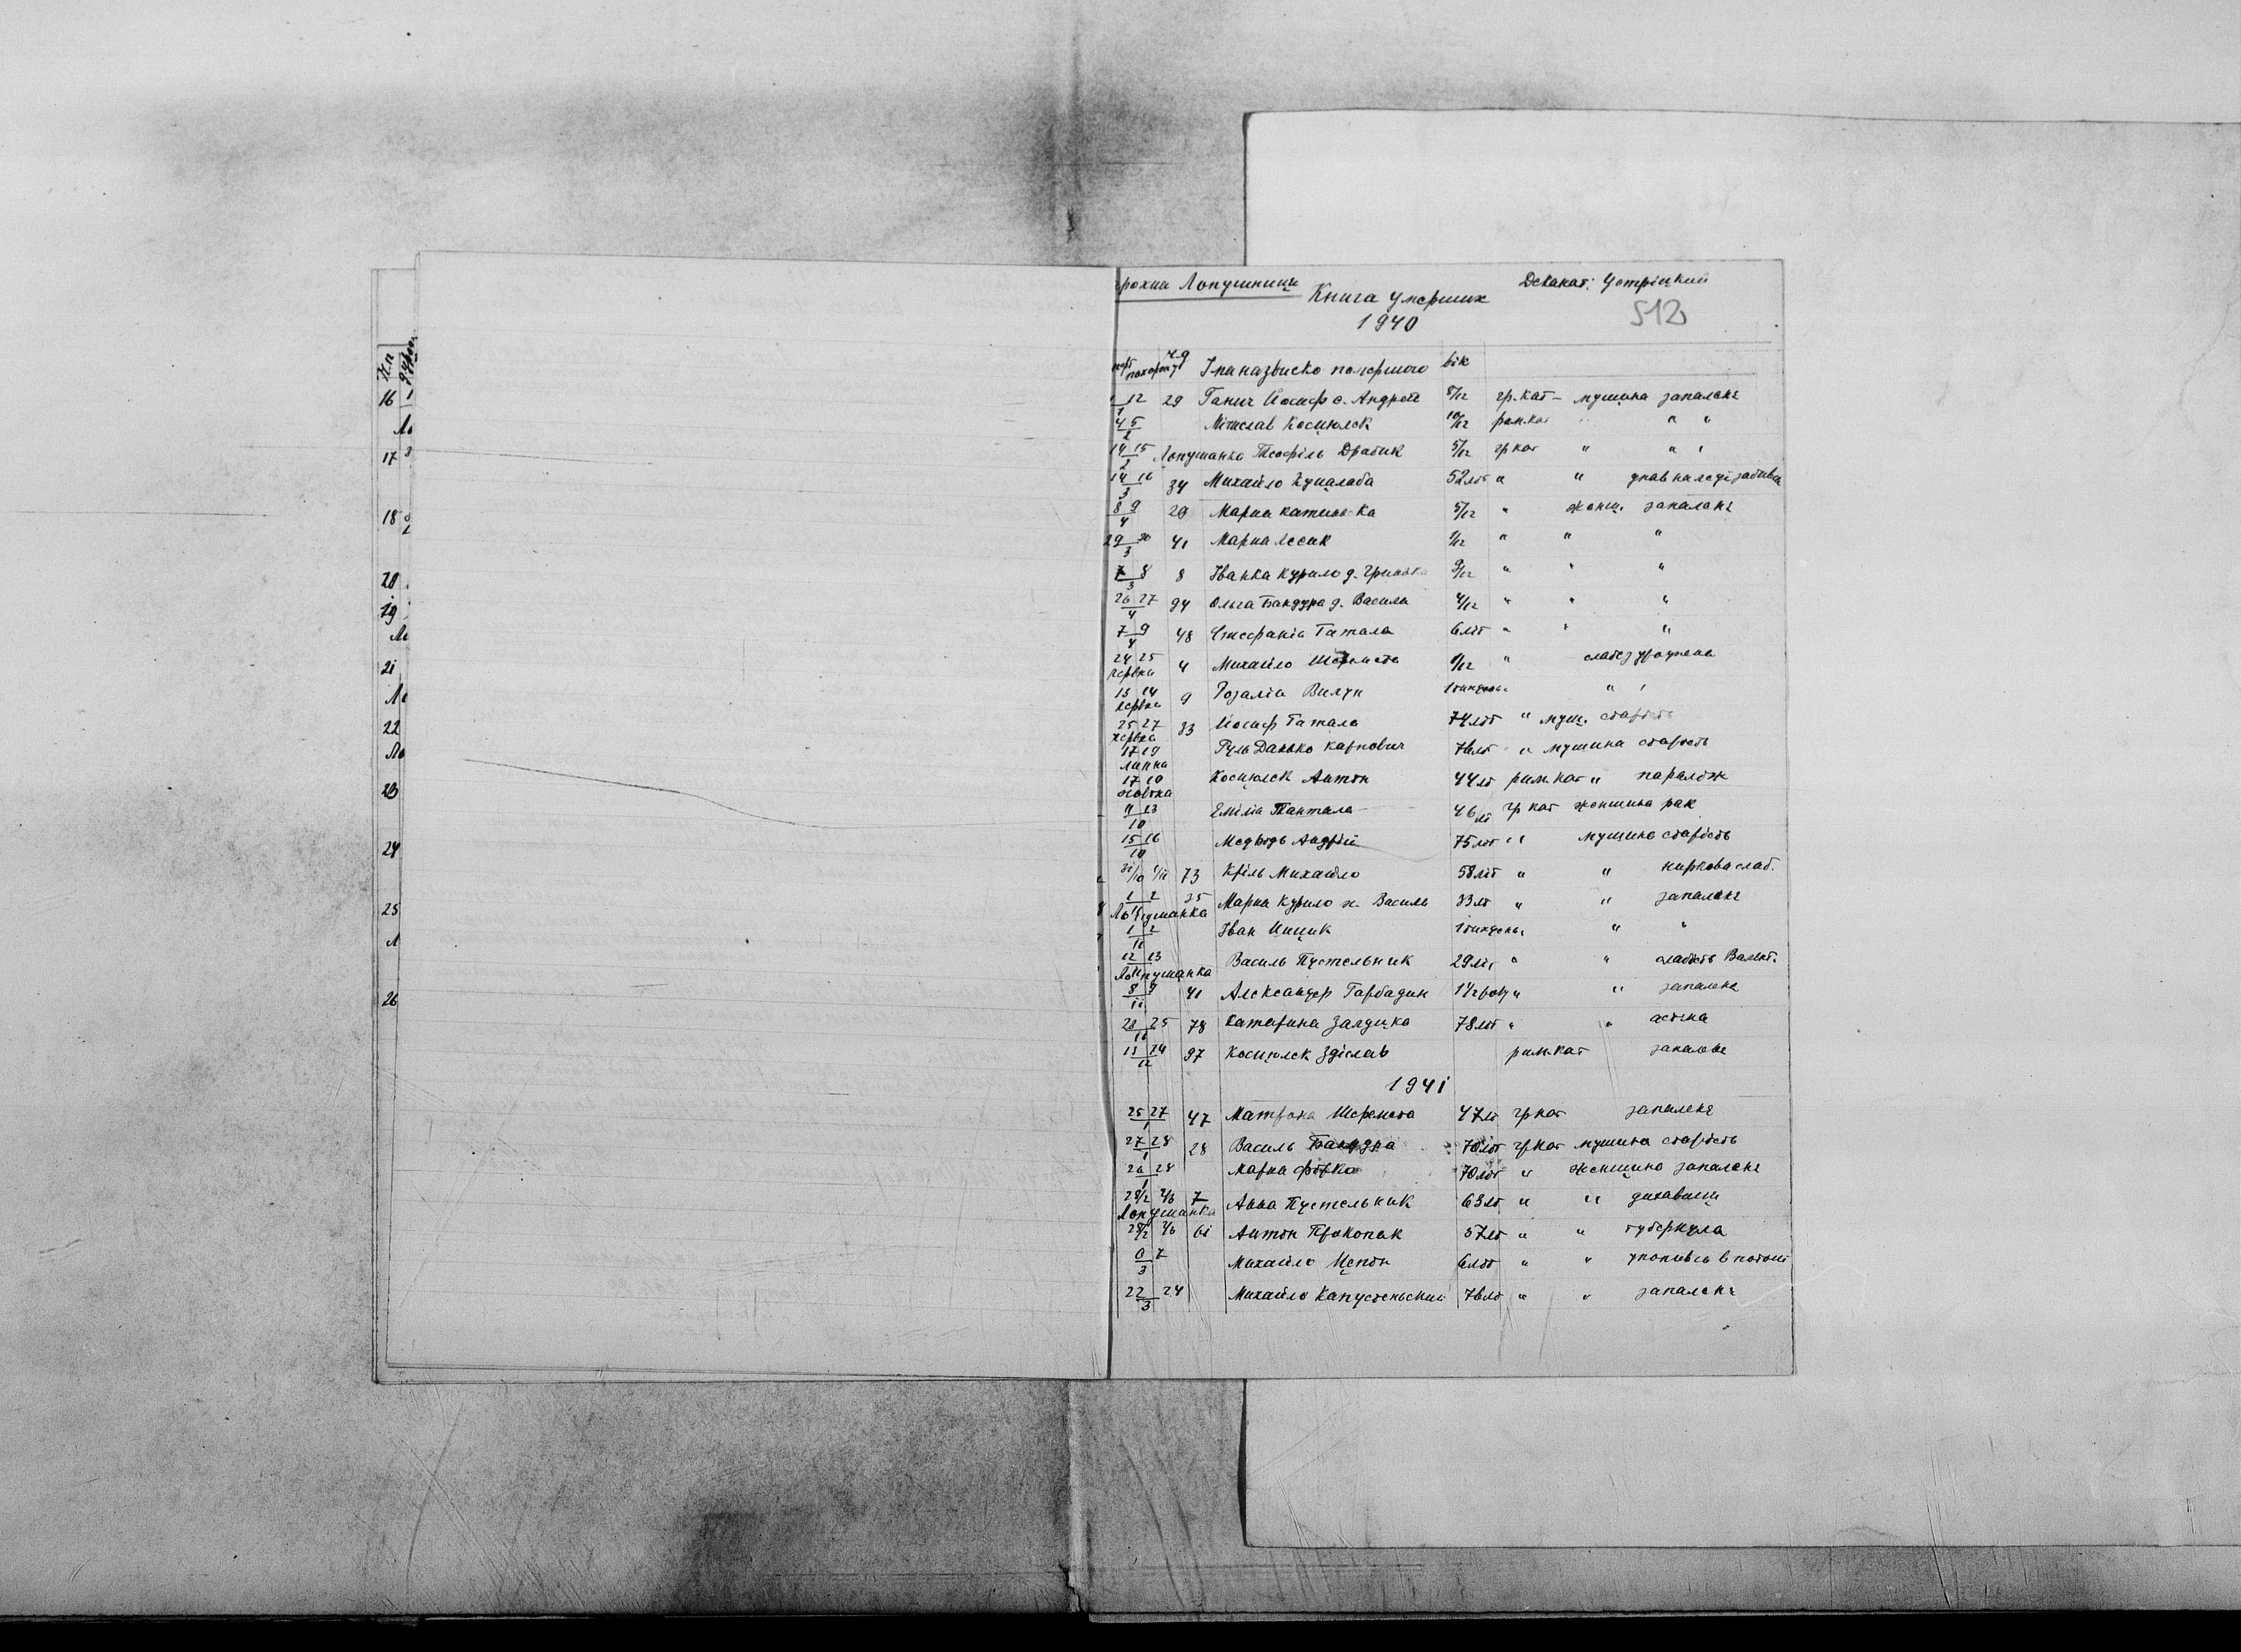 Н.п
16 1
Ло
17 3
18
20
19
Ло
21
Ло
22
Ло
23
24
25
Л
26
рохия Лопушниця Деканат: Устріцкий
Книга умерших 512
1940
похорон ч.д Імя назвиско помершого вік
12/1 29 Ганич Йосиф с. Андрея 8/12 гр.кат - мущина запалєнє
4 5/2 Мічислав Косцюлєк 10/12 рим.кат " "
14 15/2 Лопушанка Теофіль Драбик 5/12 гр кат " " "
14 16/3 34 Михайло Цупалаба 52 літ " " упав на леді забивця
8 9/4 20 Мария 5/12 " женщ. запаленє
29 30/3 41 Мария Лесик 1/12 " " "
7 8/3 8 Іванка Курило д. Гринька 9/12 " " "
26 27/4 94 Ольга Бандура д. Василя 4/12 " " "
7 9/4 48 Стефанія Гатала 6 літ " " "
24 25 червня 4 Михайло Шеремета 1/12 "
13 14 червня 9 Розалія Вилун " "
25 27 червня 83 Йосиф Гатала 74 літ " мущ. старість
17 19 липня Гуль Данько Карпович 76 літ " мущина старість
17 19 жовтня Косцюлєк Антін 44 лі рим.кат " параліж
11 13/10 Емілія Пантала 46 лі гр кат женщина рак
15 16/10 Медвідь Андрій 75 літ " мущина старість
31/10 1/11 73 Кріль Михайло 58 літ " " ниркова слаб.
1 2/11 35 Лопушанка Мария Курило ж. Василя 33 лі " " запаленє
1 2/11 Іван Цицик " "
12 13/11 Лопушанка Василь Пустельник 29 літ " " слабість Валент.
8 9/11 41 Александер Гарбадин 1 1/2 року " " запаленє
23 25/11 78 Катерина Залуцка 78 літ " " астма
13 14/12 97 Косцюлєк Здіслав рим.кат запаленє
1941
25 27/1 47 Матрона Шеремета 47 лі гр кат запаленє
27 28/1 28 Василь Бандура 70 літ гр.кат мущина старість
26 28/1 Мария Фірко 70 літ " женщина запаленє
28/2 2/3 7 Лопушанка Анна Пустельник 63 лі " "
28/2 2/3 61 Антін Прокопак 57 лі " " туберкула
6 7/3 Михайло Цепін 6 літ " " утопився в потоці
22 24/3 Михайло Капустеньский 76 лі " " запаленє